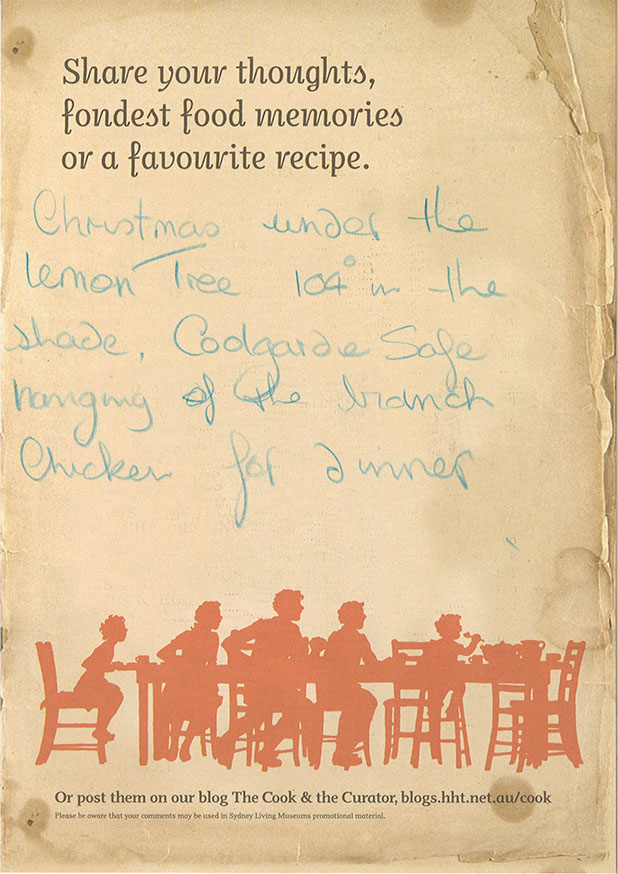 Share your thoughts,
fondest food memories
or a favourite recipe.
Christmas under the
lemon Tree 104° in the
shade, Coolgardie Safe
hanging of the branch
Chicken for dinner
Or post them on our blog The Cook & the Curator, blogs.hht.net.au/cook
Please be aware that your comments may be used in Sydney Living Museums promotional material.